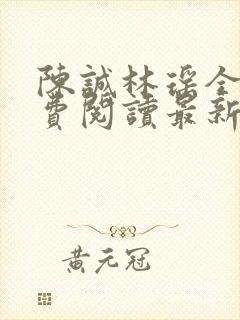 陳誠林瑶全
費閱讀最新
黃元冠